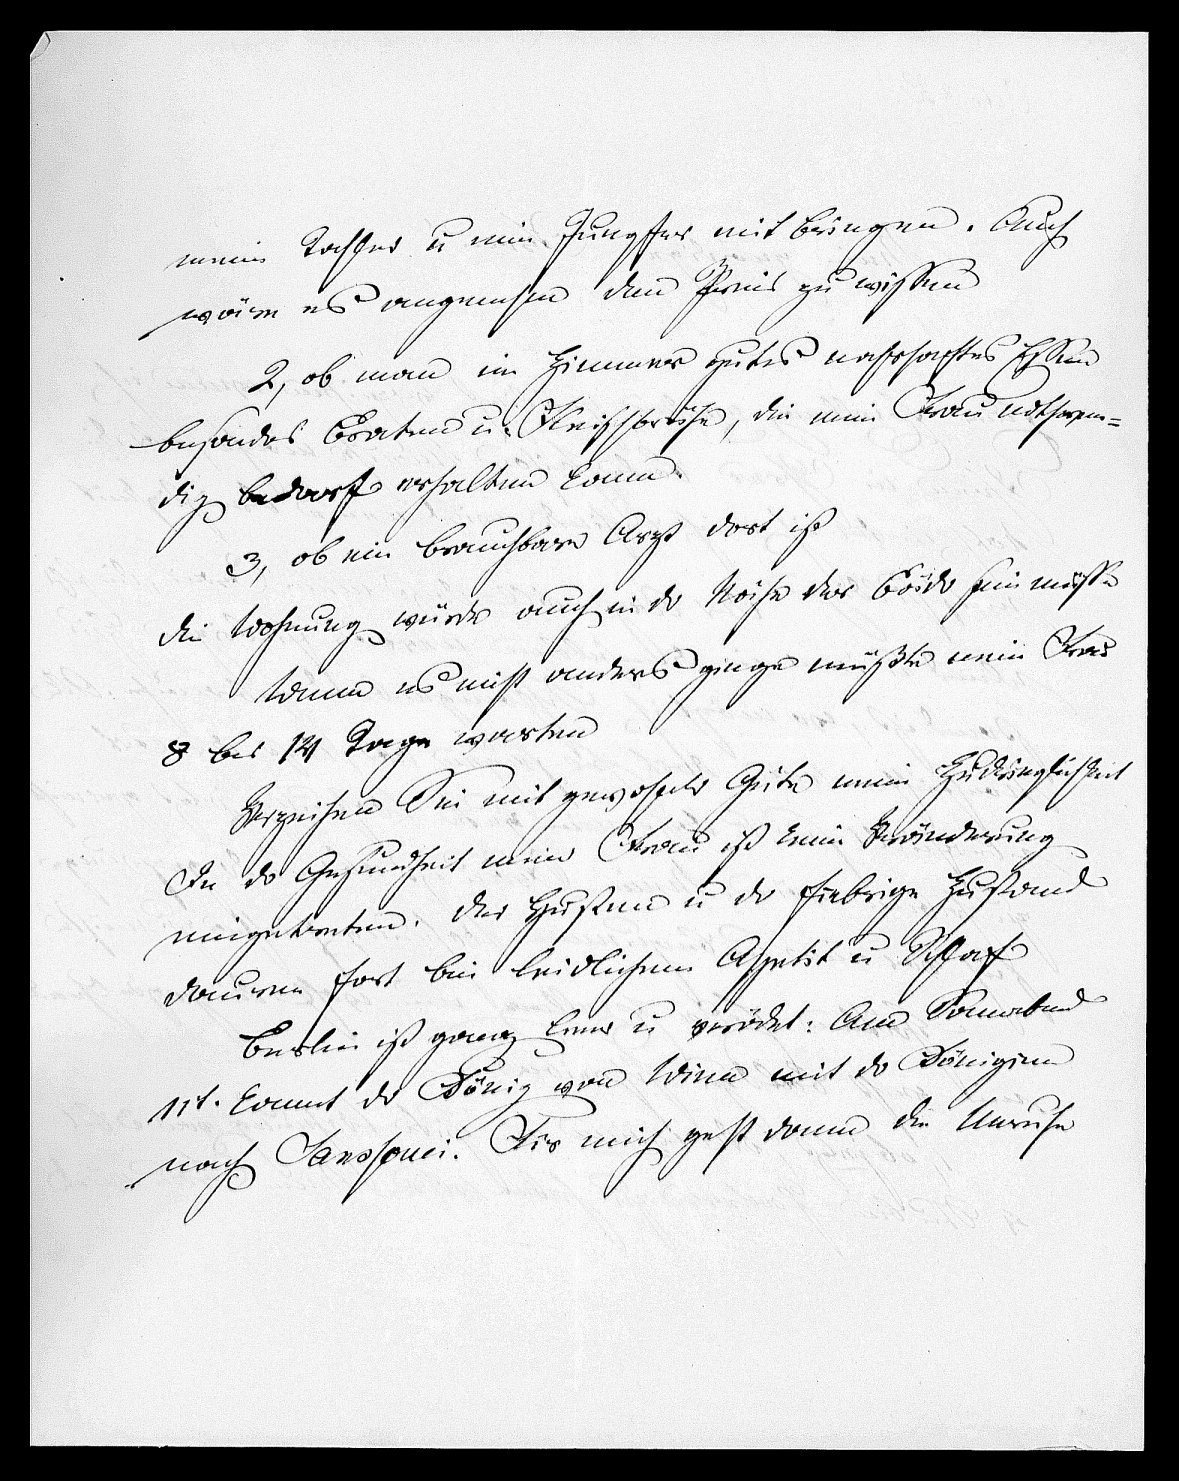 meine Tochter u eine Jungfer mit bringen. Auch
wäre es angenehm den Preis zu wissen
2, ob man im Zimmer gutes nahrhaftes Essen
besonders Braten u. Fleischbrühe, die meine Frau nothwen=
dig bedarf erhalten kann.
3, ob ein brauchbarer Arzt dort ist
die Wohnung würde auch in der Nähe der Bäder sein müssen
Wenn es nicht anders ginge müßte meine Frau
8 bis 14 Tage warten
Verzeihen Sie mit gewohnter Güte meine Zudringlichkeit
In der Gesundheit meiner Frau ist keine Veränderung
eingetreten. Der Husten u der fiebrige Zustand
dauern fort bei leidlichem Appetit u Schlaf
Berlin ist ganz leer u verödet: Am Sonnabend
11t. kommt der König von Wien mit der Königinn
nach Sanssouci. Für mich geht dann die Unruhe